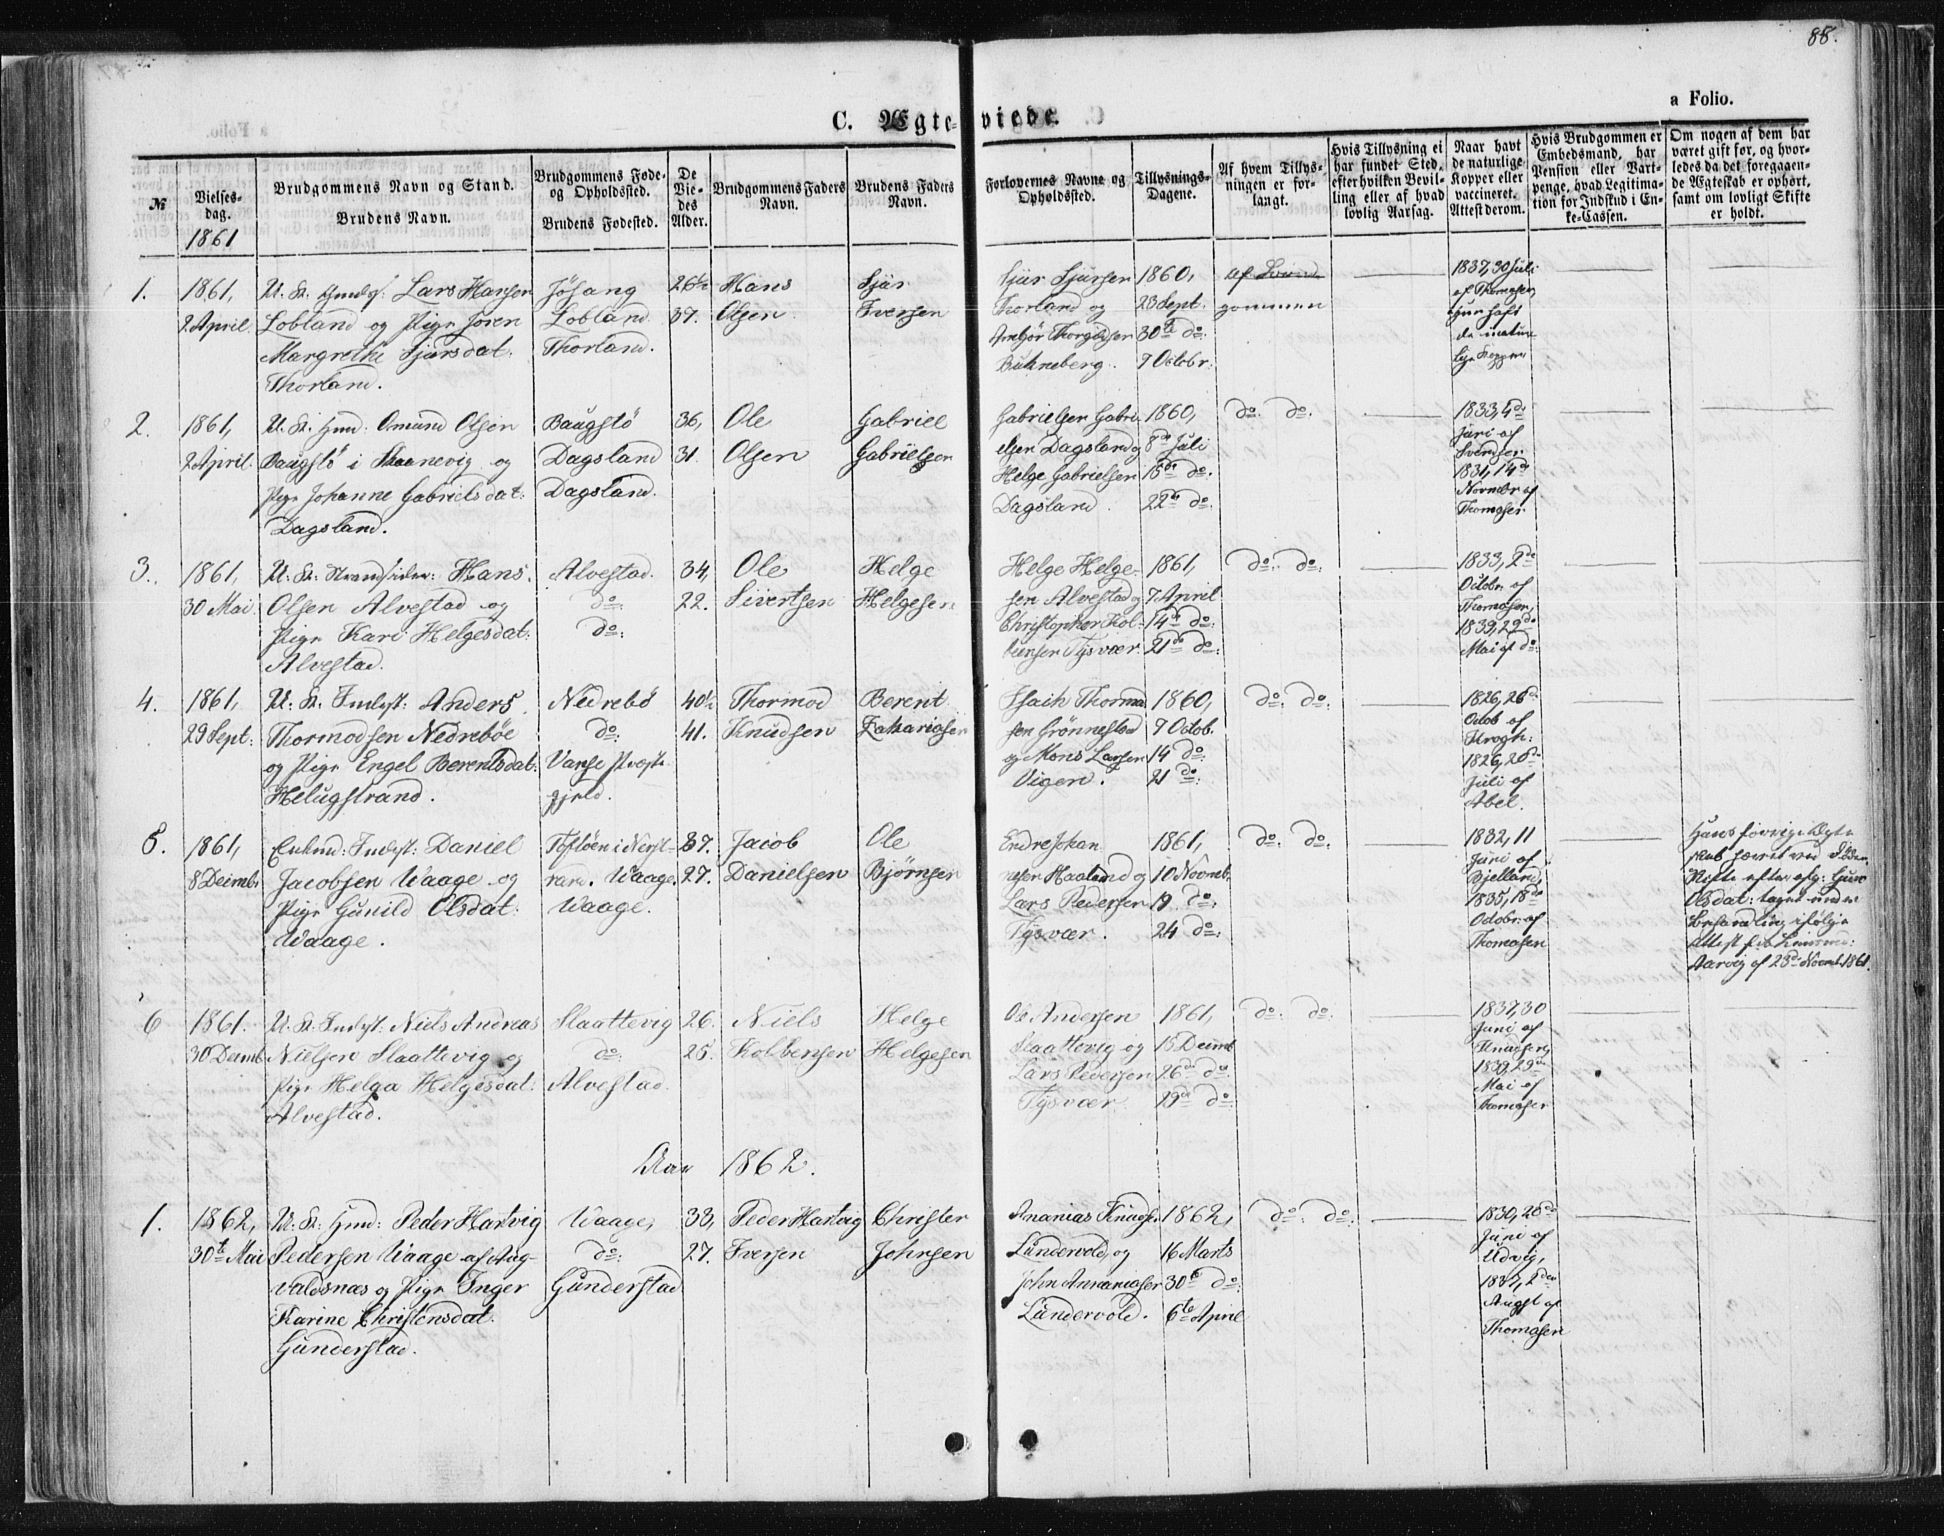 88.
a Folio.
C. Ægte-viede.
№
Vielses-dag.
1861
Brudgommens Navn og Stand.
Brudens Navn.
Brudgommens Føde- og Opholdssted.
Brudens Fødested.
De Viedes Alder.
Brudgommens Faders Navn.
Brudens Faders Navn.
Forlovernes Navne og Opholdssted.
Tillysnings-Dagene.
Af hvem Tillysningen er forlangt.
Hvis Tillysning ei har fundet Sted, efter hvilken Bevilling eller af hvad lovlig Aarsag.
Naar havt de naturlige Kopper eller vaccineret. Attest derom.
Hvis Brudgommen er Embedsmand, har Pension eller Vartpenge, hvad Legitimation for Indskud i Enke-Cassen.
Om nogen af dem har været gift før, og hvorledes da det foregaaende Ægteskab er ophørt, samt om lovligt Skifte er holdt.
1. 1861, Lars Hansen Jøsang 26½ Hans Sjur Sjur Sjursen 1860,
2 April. Lobland og Pige Joren Lobland 37. Olsen Iversen Thorland og 23 Sept. gommen 1837, 30 Juli af Thomasen,
Margrethe Sjursdat: Thorland. 30te do:
Thorland. 7 Octobr:
2. 1861, U. K. Gmd: Omund Olsen Baugstø 36, Ole Gabriel Gabrielsen Gabri- 1860, do: do: 1833, 4de
2 April. Baugstø i Skaanevig og Dagsland 31. Olsen Gabrielsen elsen Dagsland og 8de Juli Juni af
Pige Johanne Gabrielsdat: Dagsland. Helge Gabrielsen 15de do: 1831, 14de
Dagsland. Dagsland. 22de do: Thomasen
3. 1861, U. K. Strandsider: Hans Alvestad. 34, Ole Helge Helge Helge- 1861, do: do: 1833, 2de
30 Mai. Olsen Alvestad og do: 22. Sivertsen Helgesen sen Alvestad og 7 April Octobr: af Thomasen,
Pige Kari Helgesdat: do: Christopher Kol- 14de do: 1839, 29de
Alvestad. Tysvær. 21de do: Mai af do:
4. 1861, U. K. Indst: Anders Nedrebø 40½ Thormod Berent Isach Thormod- 1860, do: do: 1826, 26de
29 Sept: Thormodsen Nedrebøe do: 41. Knudsen Zakariasen sen Grønnestad 7 Octob. Octob af Krogh:
og Pige Engel Berentsdat: Vanse Præste- og Mons Larsen 14 do: 1826, 26de
Helugstrand. gjeld. Vigen. 21 do: Juli af Abel.
5. 1861, Enkmd: Indst: Daniel Tøstøen i Nerst- 37. Jacob Ole Endre Johan- 1861, do: do: 1832, 11
8 Decimb: Jacobsen Waage og rand. Waage. 27. Danielsen Bjørnsen nesen Haaland og 10 Novmb: Juni af Bjelland,
Pige Gunild Olsdat: Waage. Lars Pedersen 19 do: 1835, 18de
Waage. Tysvær. 24 do: Octobr: af Thomasen
Hans forrige Ægte-
skab hævet ved Døden,
Skifte efter afg: Guri
Olsdat: taget under
behandling ifølge
Attest fra Lensmd:
Aarvig af 25de Novmb: 1861.
6 1861. U. K. Indst: Niels Andreas Slaattevig 26. Niels Helge Ole Andersen 1861, do: do: 1837, 30
30 Decimb: Nielsen Slaattevig og do: 25. Kolbensen Helgesen Slaattevig og 15 Decimb Juni af Knudsen,
Pige Helga Helgesdat: Alvestad. Lars Pedersen 26de do: 1839, 29de
Alvestad. Tysvær 29de do: Mai af Thomasen
Aar 1862.
1. 1862, U. K. Gmd: Peder Hartvig Waage, 33, Peder Hartvig Christen Ananias Knudsen 1862, do: do: 1830, 26de
30te Mai Pedersen Waage af Aug- do: 27. Iversen Johnsen Lundervold, og 16 Marts Juni af Udvig,
valdsnæs og Pige Inger Gunderstad. John Annaniasen 30te do: 1837, 2den
Karine Christensdat: Lundervold. 6te April Augst af
Gunderstad. Thomasen